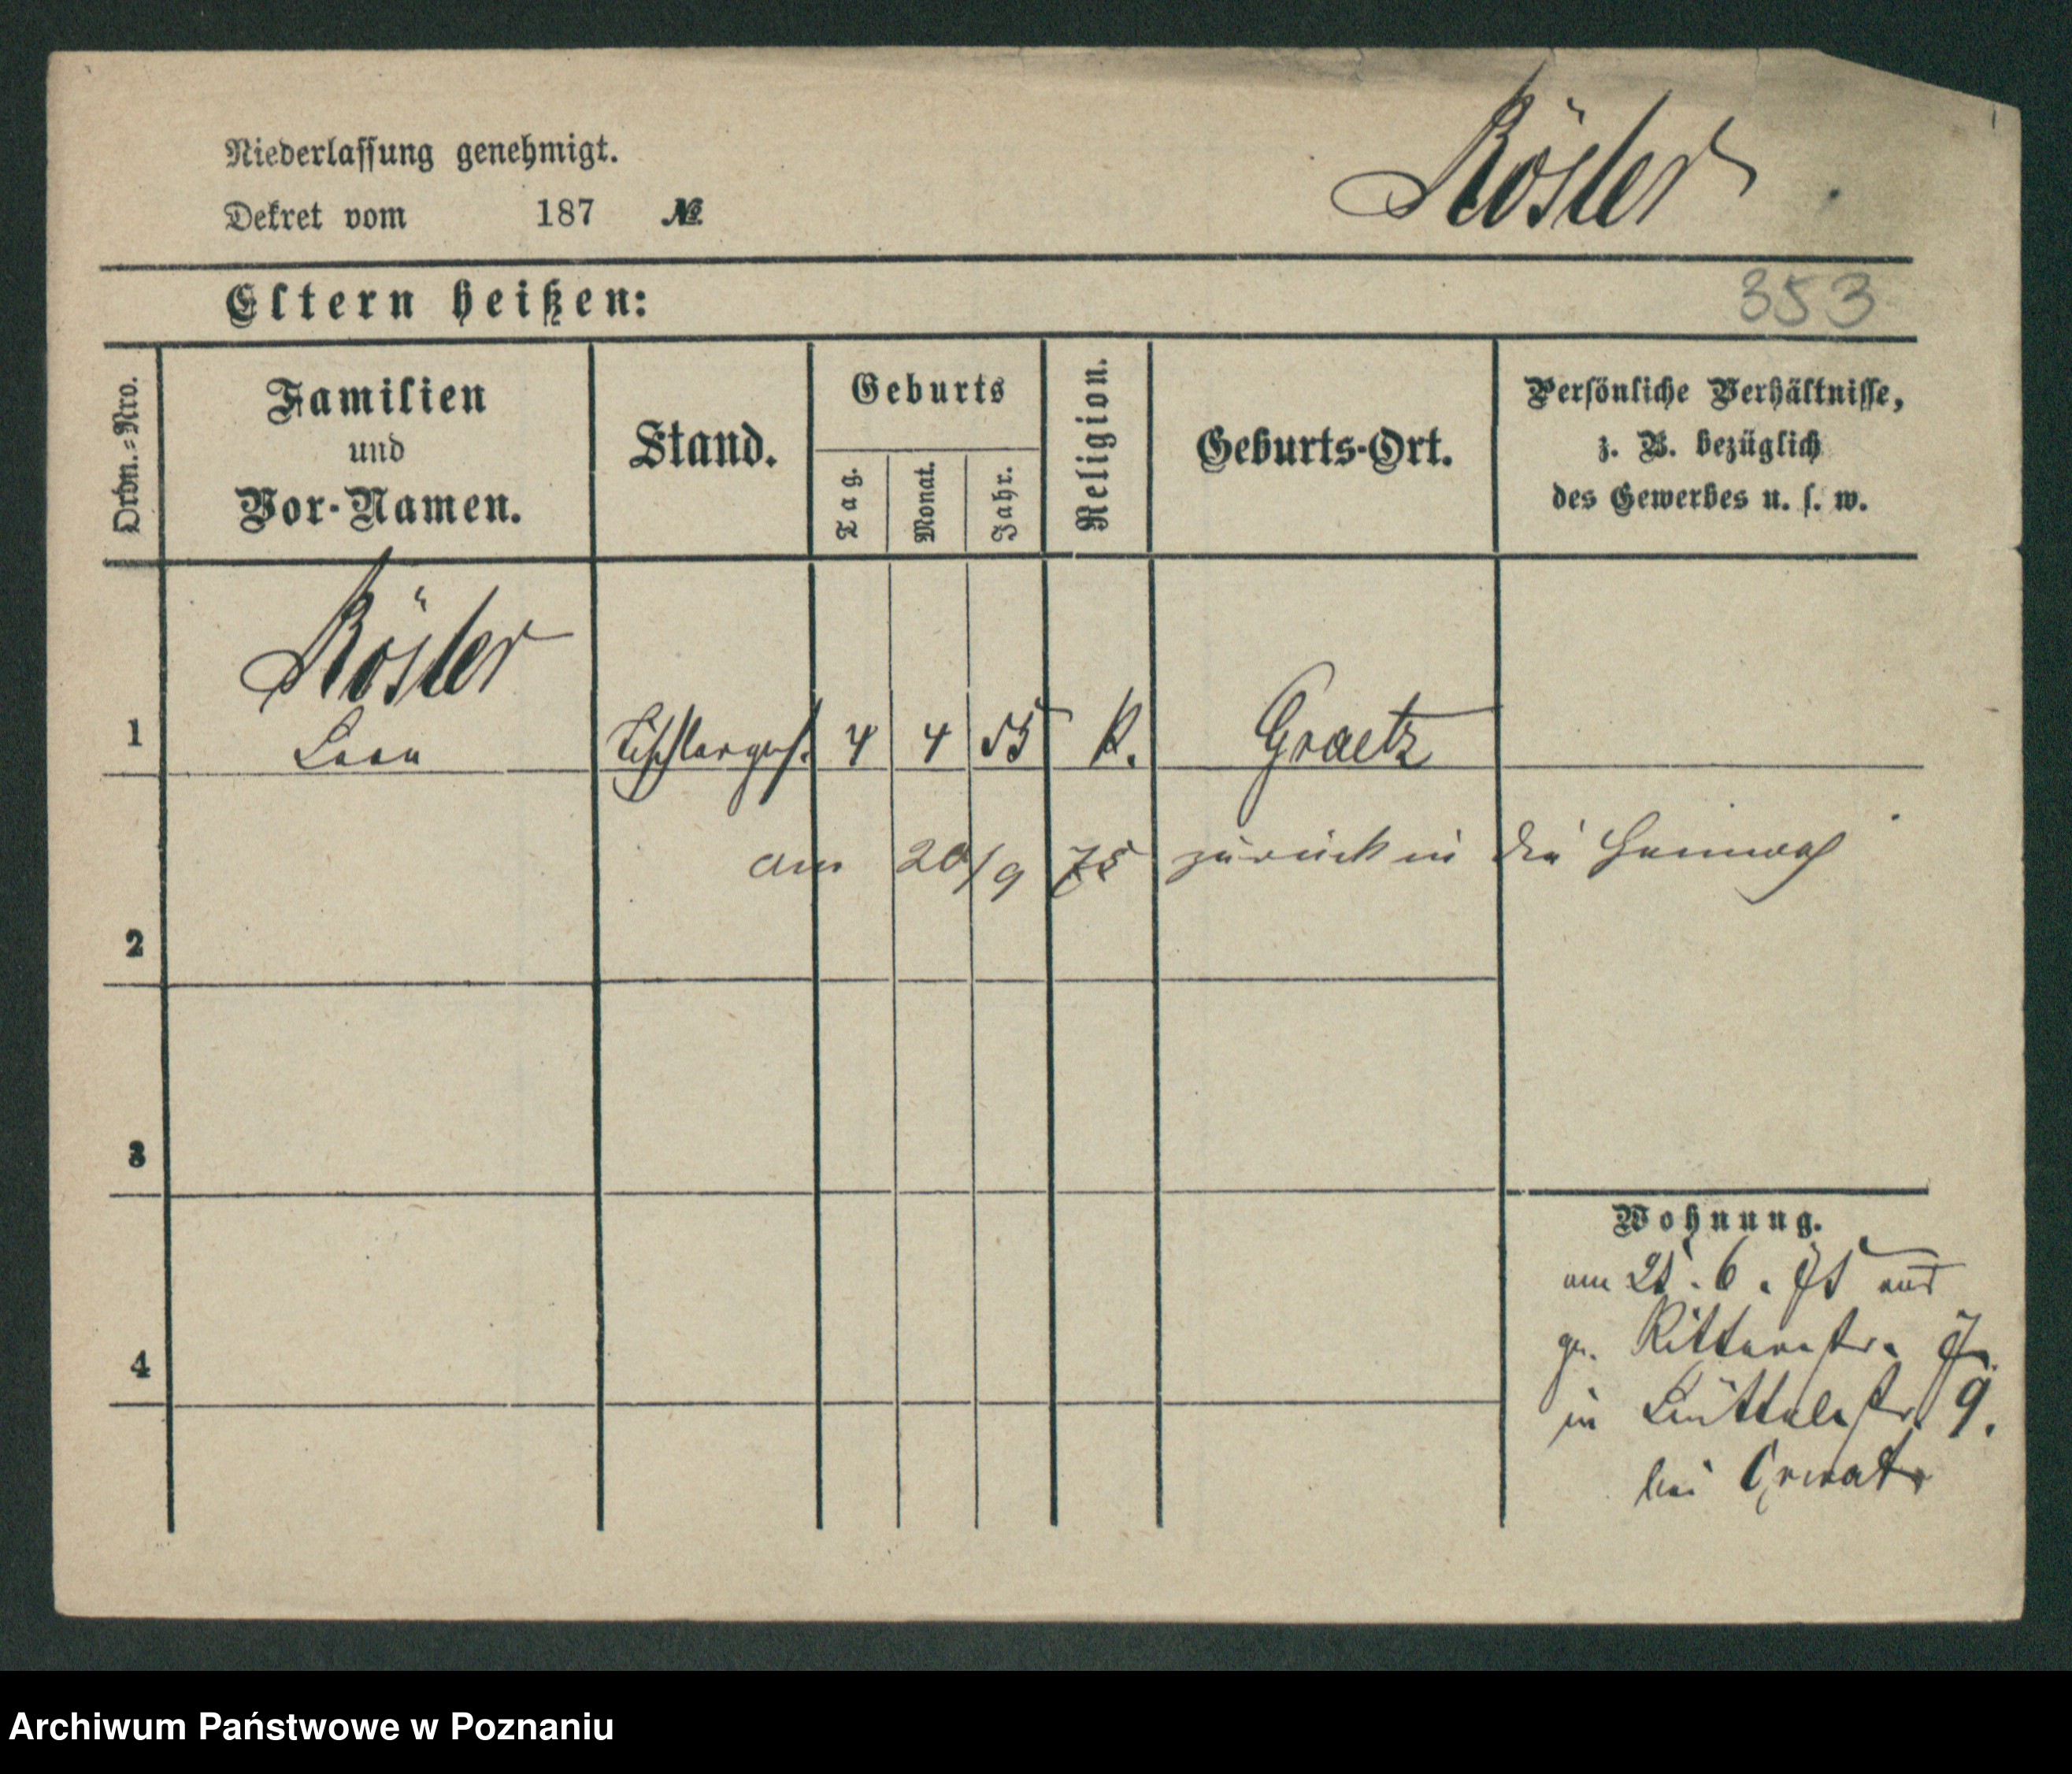 Niederlassung genehmigt.
Dekret vom 187 №
Röster
Eltern heißen:
353
Ordn.=Nro.
Familien
und
Vor-Namen.
Stand.
Geburts
Tag.
Monat.
Jahr.
Religion.
Geburts-Ort.
Persönliche Verhältnisse,
z. B. bezüglich
des Gewerbes u. s. w.
Röster
1 Leon Tischlerges. 4 4 55 K. Graetz
am 20/9 75 zurück in die
2
3
4
Wohnung.
am 25. 6. 75 aus
gr. Ritterstr. 7.
in 9.
bei
Archiwum Państwowe w Poznaniu